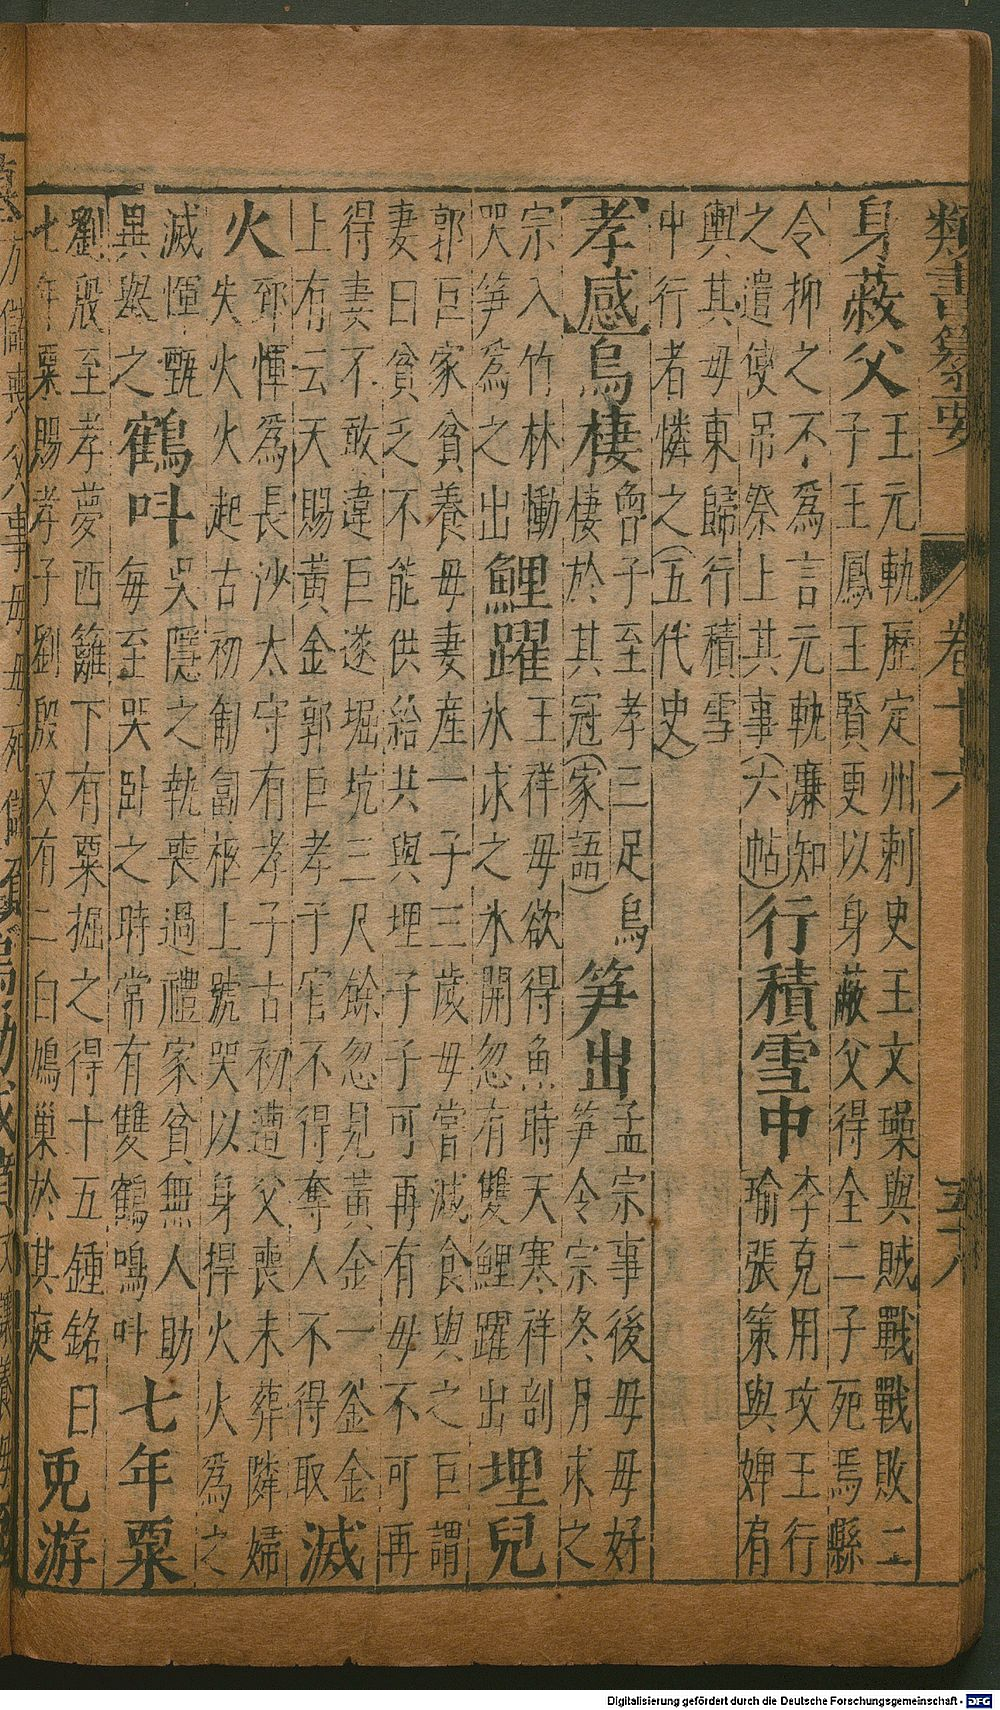 類書纂要 卷十六
身蔽父
王元軌歷定州刺史王文璪與賊戰戰敗二
子王鳳王賢更以身蔽父得全二子死焉縣
令抑之不為言元軌廉知
之遣使吊祭上其事(六帖)
行積雪中
李克用攻王行
瑜張策與婢有
輿其母東歸行積雪
中行者憐之(五代史)
【孝感】烏棲
曾子至孝三足烏
棲於其冠(家語)
笋出
孟宗事後母母好
笋令宗冬月求之
宗入竹林慟
哭笋為之出
鯉躍
王祥母欲得魚時天寒祥剖
氷求之氷開忽有雙鯉躍出
埋兒
郭巨家貧養母妻產一子三歲母嘗減食與之巨謂
妻曰貧乏不能供給共與埋子子可再有母不可再
得妻不敢違巨遂堀坑三尺餘忽見黃金一釜金
上有云天賜黃金郭巨孝子官不得奪人不得取
滅
火
郅惲為長沙太守有孝子古初遭父喪未葬隣婦
失火火起古初匍匐柩上號哭以身捍火火為之
滅惲甄
異與之
鶴叫
吳隱之執喪過禮家貧無人助
每至哭臥之時常有雙鶴鳴叫
七年粟
劉殷至孝夢西籬下有粟掘之得十五鍾銘曰
七年粟賜孝子劉殷又有二白鳩巢於其庭
兎游
Digitalisierung gefördert durch die Deutsche Forschungsgemeinschaft - DFG